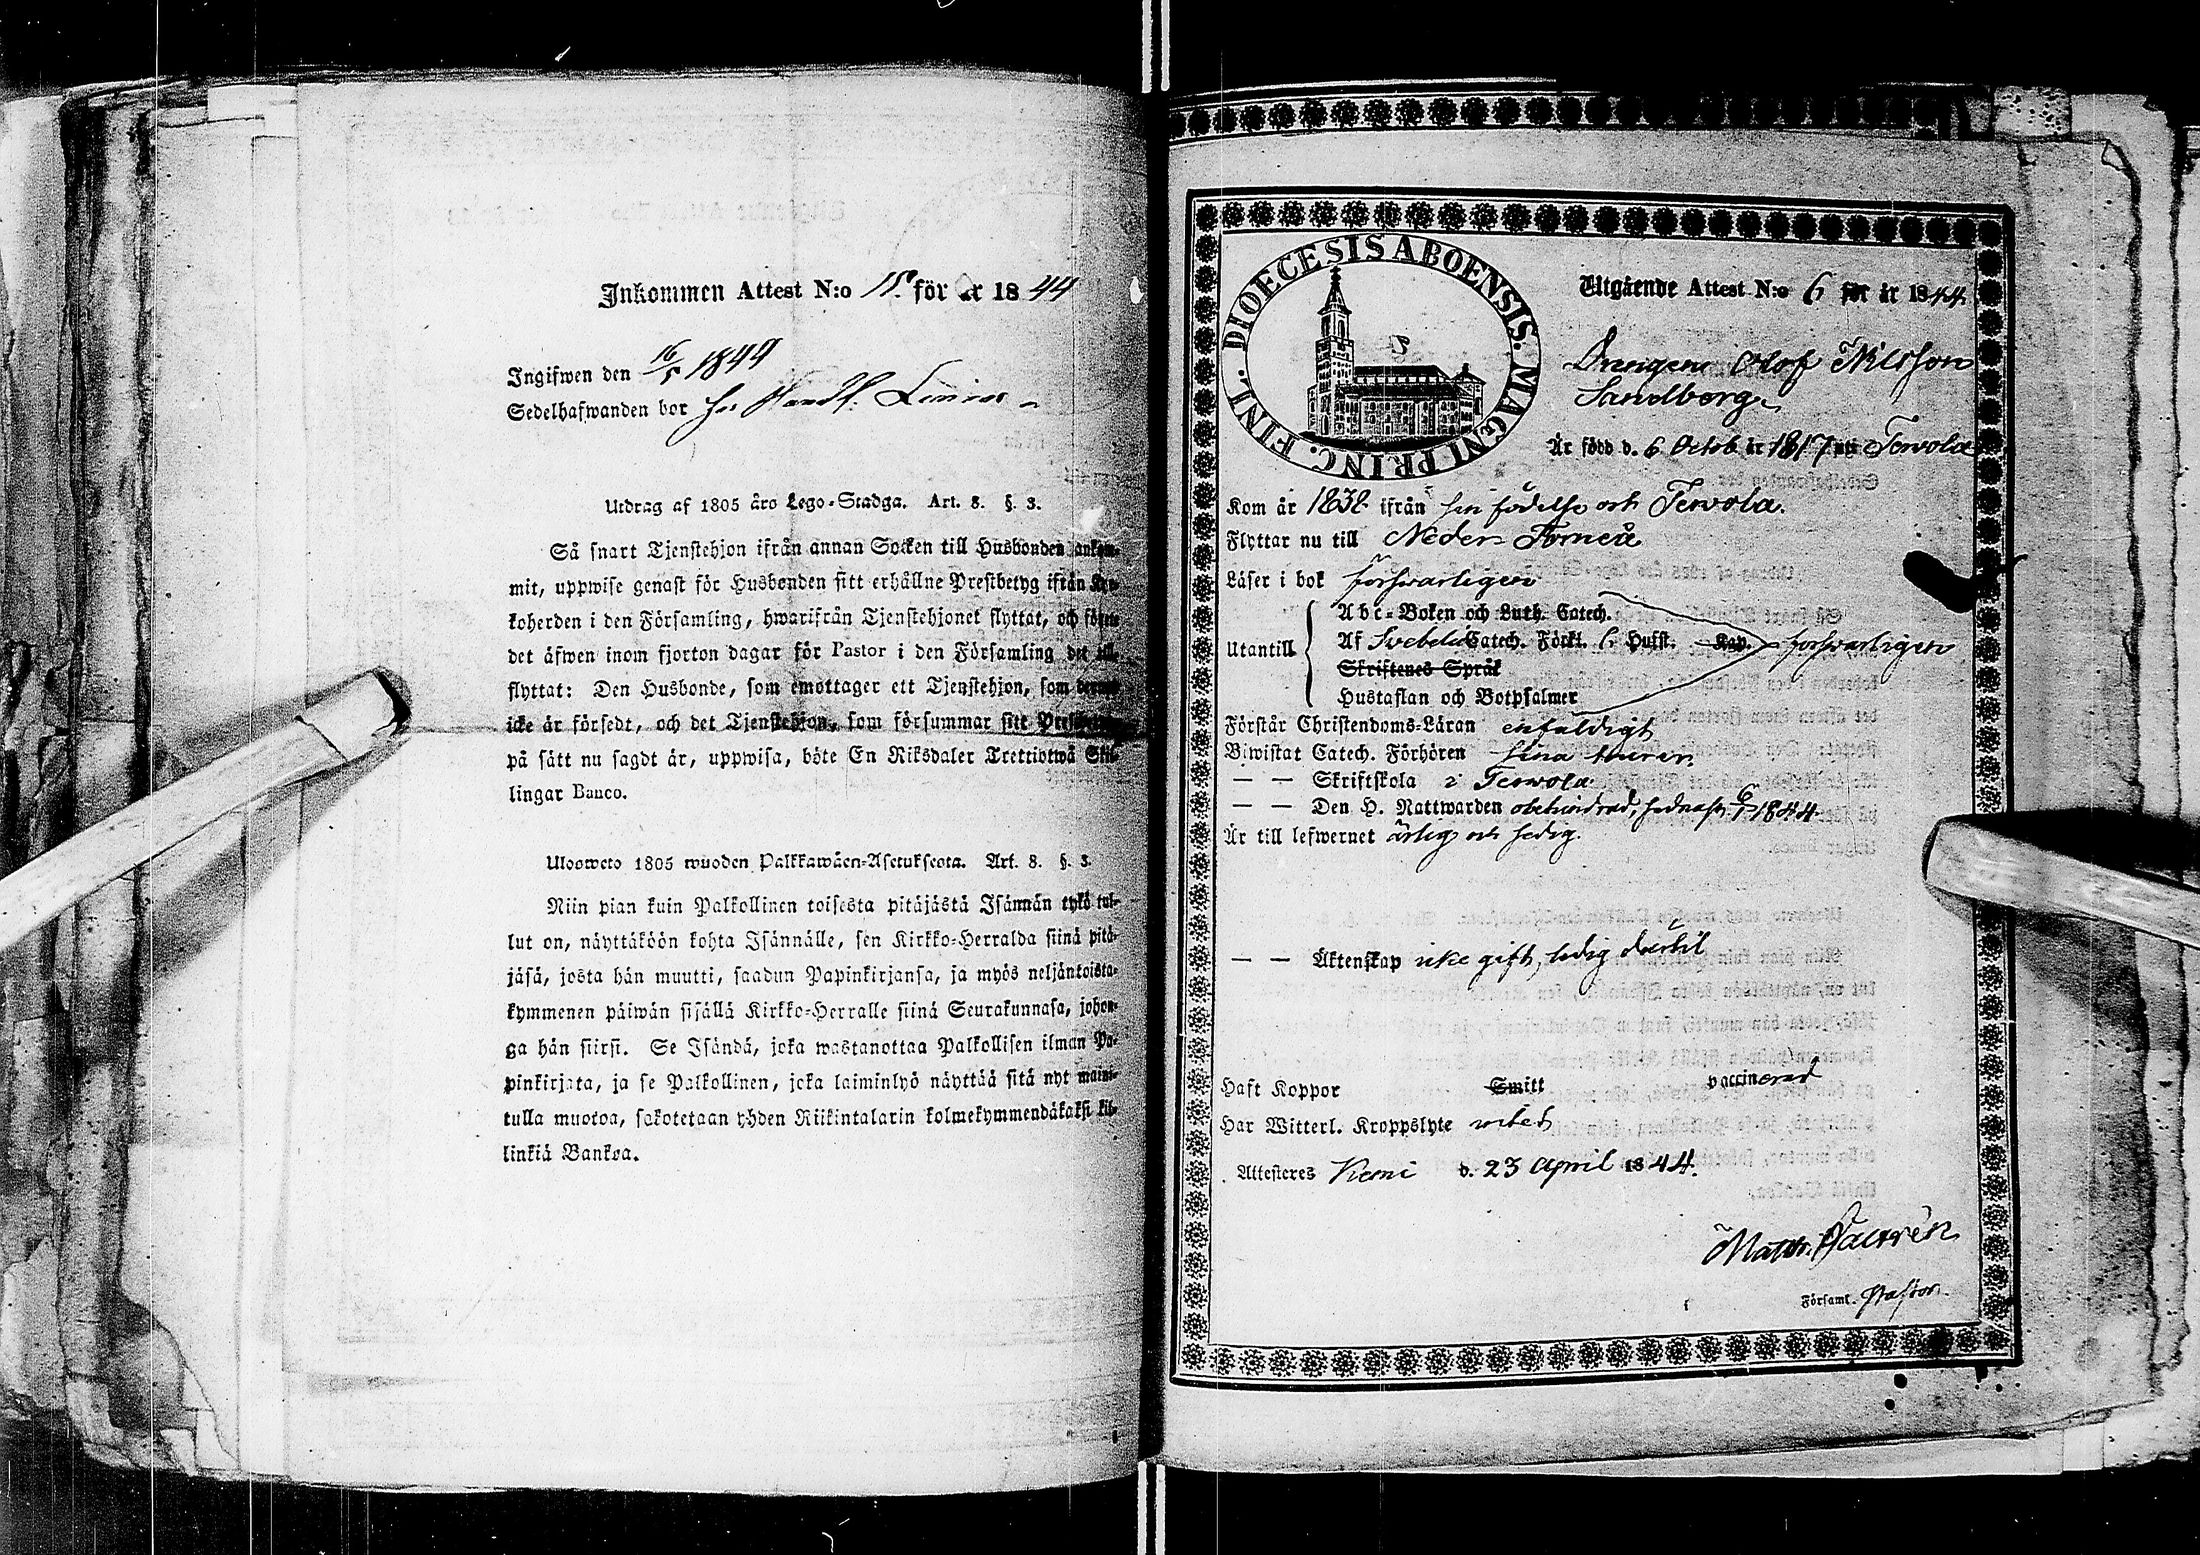 Inkommen Attest N:o 15. för år 1844
Ingifwen den 16/5 1844
Sedelhafwanden bor hos Handl.
Utdrag af 1805 års Lego-Stadga. Art. 8. §. 3.
Så snart Tjenstehjon ifrån annan Socken till Husbonden ankom-
mit, uppwise genast för Husbonden sitt erhållne Prestbetyg ifrån Kyr-
koherden i den Församling, hwarifrån Tjenstehjonet flyttat, och förete
det äfwen inom fjorton dagar för Pastor i den Församling det till-
flyttat: Den Husbonde, som emottager ett Tjenstehjon, som dermed
icke är försedt, och det Tjenstehjon, som försummar sitt Prestbetyg,
på sätt nu sagdt är, uppwisa, böte En Riksdaler Trettiotwå Skil-
lingar Banco.
Ulosweto 1805 wuoden Palkkawäen-Asetuksesta. Art. 8. §. 3.
Niin pian kuin Palkollinen toisesta pitäjästä Isännän tykö tul-
lut on, näyttäköön kohta Isännälle, sen Kirkko-Herralda siinä pitä-
jäsä, josta hän muutti, saadun Papinkirjansa, ja myös neljäntoista-
kymmenen päiwän sisällä Kirkko-Herralle siinä Seurakunnasa, johon-
ga hän siirsi. Se Isändä, joka wastanottaa Palkollisen ilman Pa-
pinkirjata, ja se Palkollinen, joka laiminlyö näyttää sitä nyt maini-
tulla muotoa, sakotetaan yhden Riikintalarin kolmekymmendäkaksi kil-
linkiä Bankoa.
DIOECESIS ABOENSIS. MAGNI PRINC. FINL.
Utgående Attest N:o 6 för år 1844
Drengen Olof Nilsson
Sandberg
Är född d. 6 Octob år 1817 uti Terwola
Kom år 1838 ifrån sin födelse ort Terwola.
Flyttar nu till Neder Torneå
Läser i bok försvarligen
Utantill
Abc-Boken och Luth. Catech.
Af Svebelii Catech. Förkl. 6 Hufst. Kap. försvarligen
Skriftenes Språk
Hustaflan och Botpsalmer
Förstår Christendoms-Läran enfaldigt
Biwistat Catech. Förhören sina turer
— — Skriftskola i Terwola
— — Den H. Nattwarden obehindrad, sednast 6/1 1844.
Är till lefwernet ärlig och sedig.
— — Äktenskap icke gift, ledig dertil
Haft Koppor Smitt vaccinerad
Har Witterl. Kroppslyte intet
Attesteres Kemi d. 23 April 1844.
Matth.
Församl. Pastor.